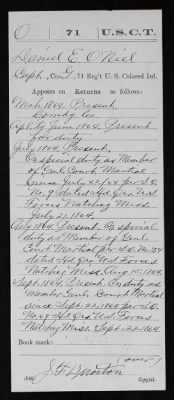 O | 71 | U.S.C.T.
Daniel E. O'Niel
Capt., Co. G, 71 Reg't U. S. Colored Inf.
Appears on Returns as follows:
Mch 1864, Present,
Comdg. Co.
Apl. to June 1864, Present
for duty
July 1864, Present,
On special duty as Member
of Genl. Court Martial
since July 22/64 per S.O.
No. 9 dated Hd. Qrs. U.S.
Forces Natchez Miss.
July 21, 1864.
Aug. 1864, Present. On special
duty as Member of Genl.
Court Martial per S.O. No. 34
dated Hd. Qrs. U.S. Forces
Natchez Miss. Aug. 15, 1864.
Sept. 1864, Present. On duty as
Member Genl. Court Martial
since Sept. 22, 1864 per S.O.
Hd. Qrs. U.S. Forces
Natchez Miss. Sept. 22, 1864.
Book mark:
(over)
Copyist.